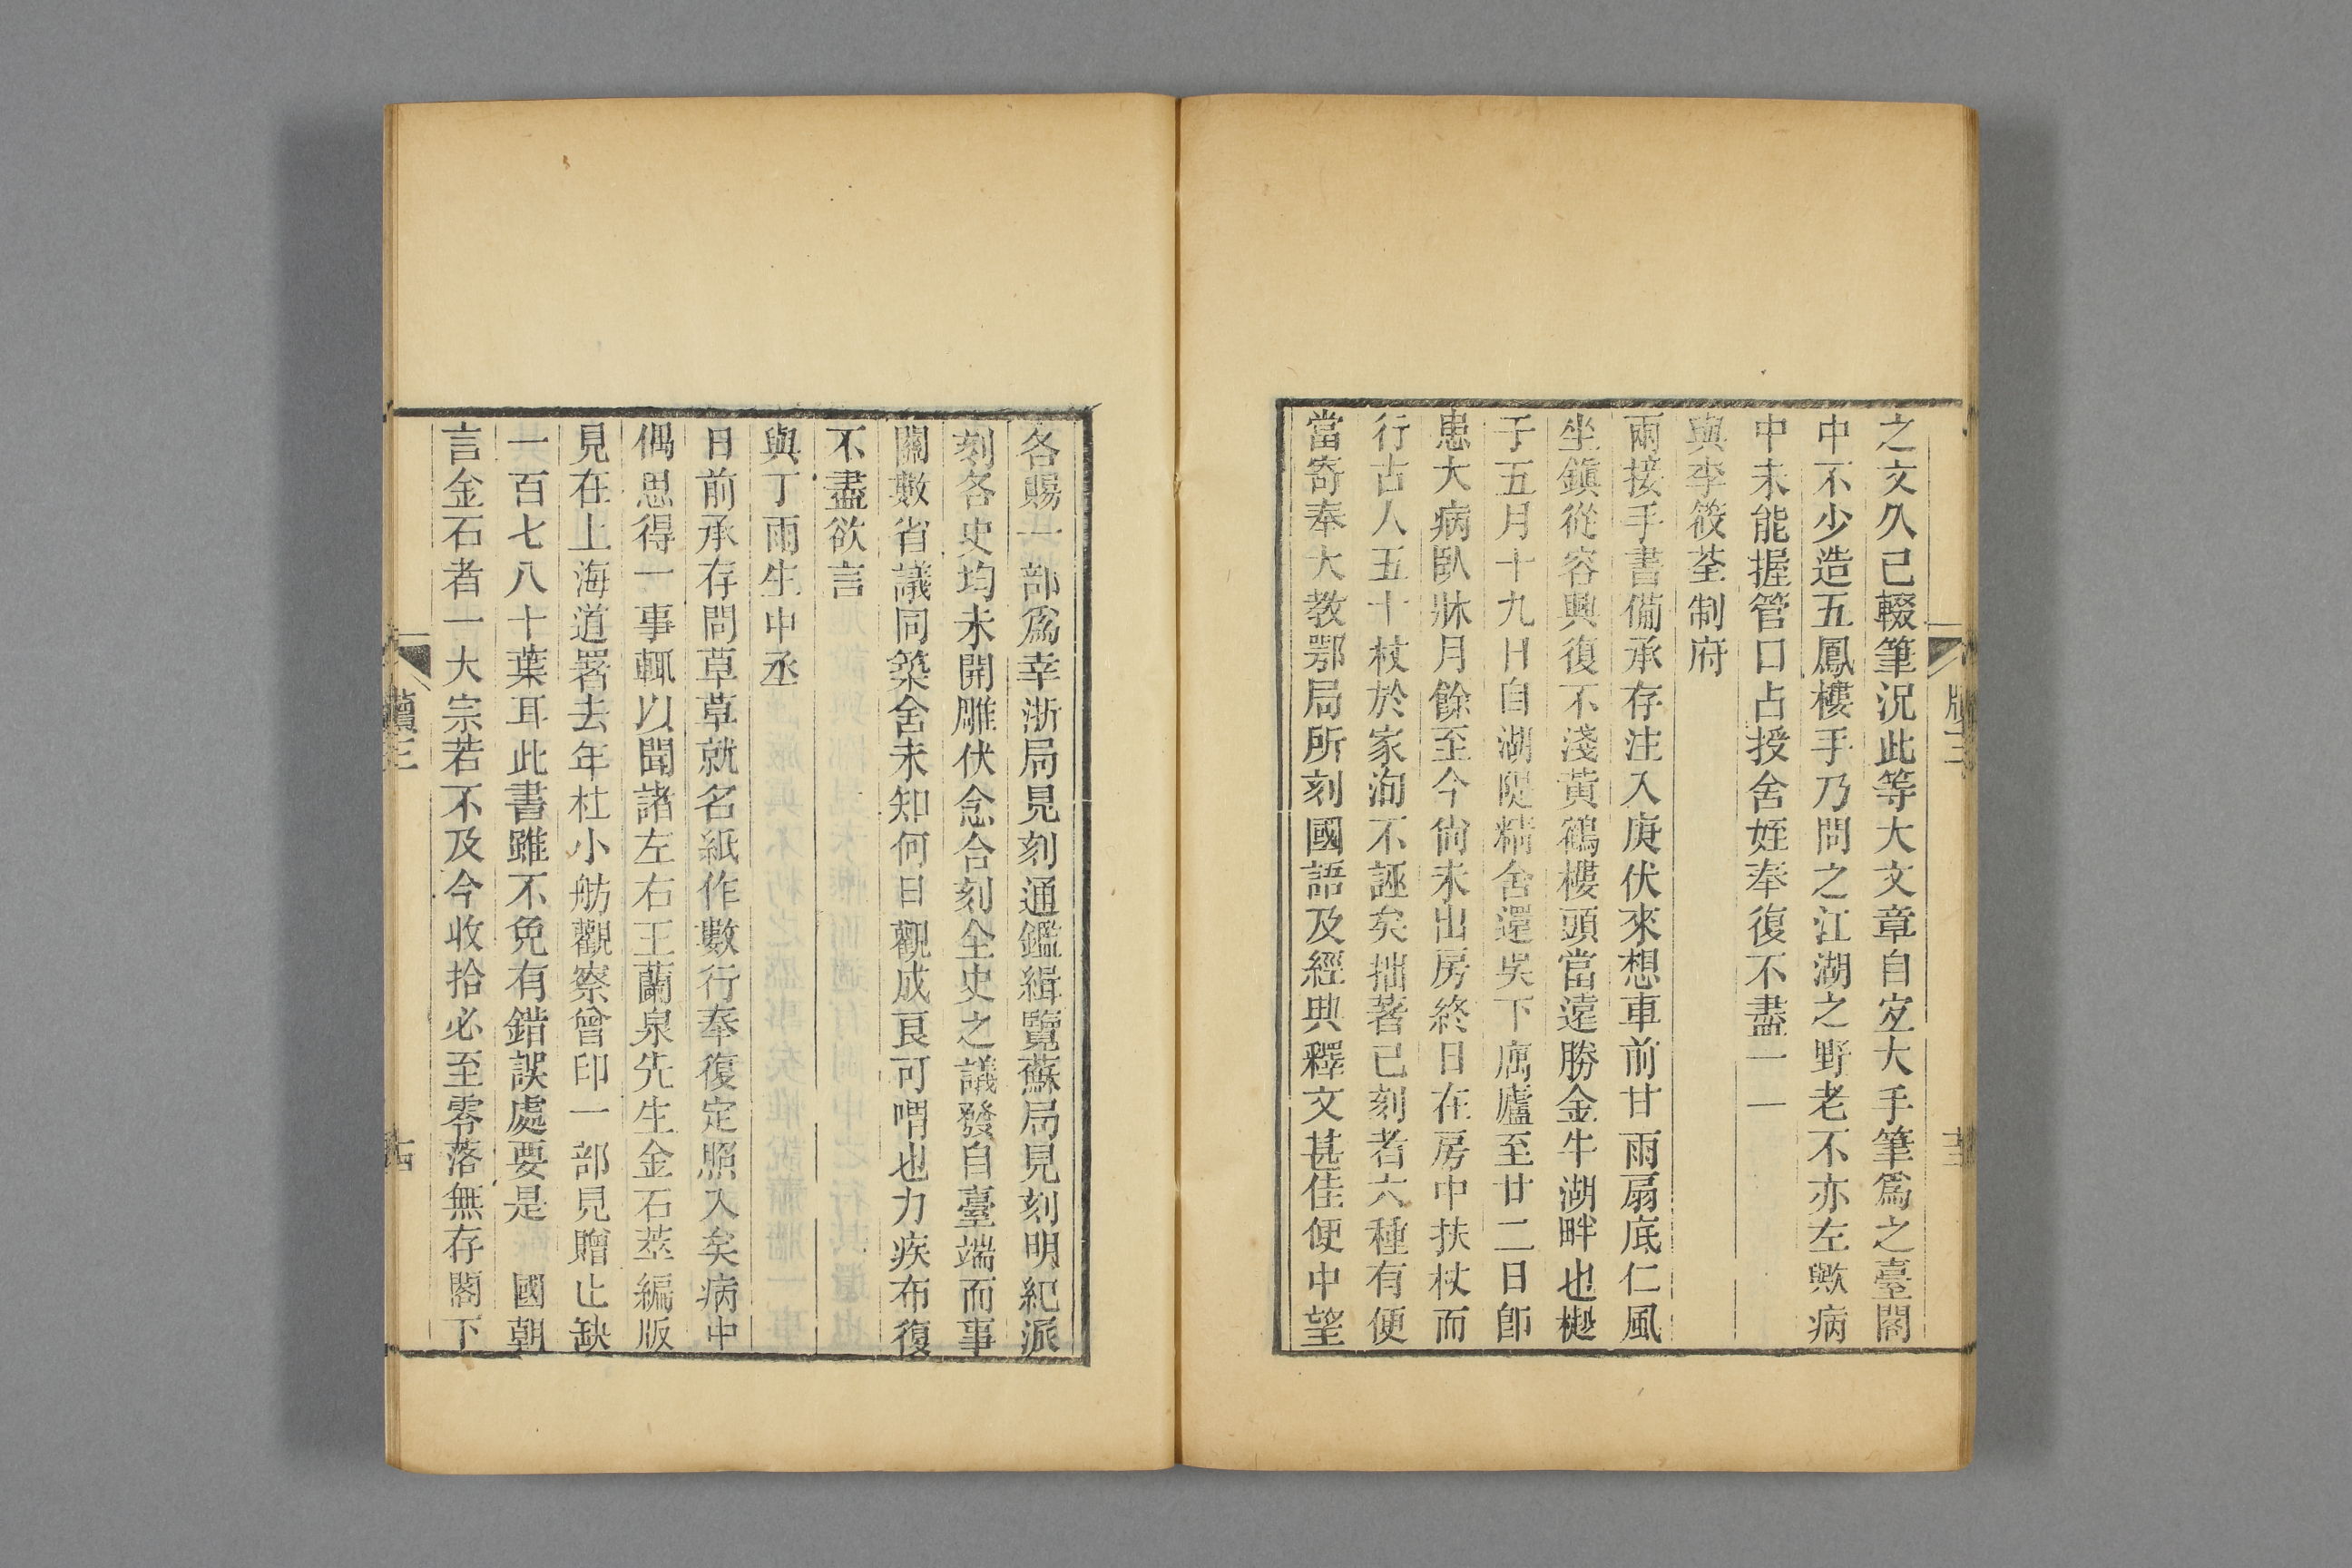 之文久已輟筆況此等大文章自宐大手筆爲之臺閣
中不少造五鳳樓手乃問之江湖之野老不亦左歟病
中未能握管口占授舍姪奉復不盡一一
與李筱荃制府
兩接手書備承存注入庚伏來想車前甘雨扇底仁風
坐鎭從容興復不淺黃鶴樓頭當遠勝金牛湖畔也樾
于五月十九日自湖隄精舍還吳下寓廬至廿二日卽
患大病臥牀月餘至今尙未出房終日在房中扶杖而
行古人五十杖於家洵不誣矣拙著已刻者六種有便
當寄奉大教鄂局所刻國語及經典釋文甚佳便中望
各賜一部爲幸浙局見刻通鑑緝覽蘇局見刻明紀派
刻各史均未開雕伏念合刻全史之議發自臺端而事
關數省議同築舍未知何日觀成良可喟也力疾布復
不盡欲言
與丁雨生中丞
日前承存問草草就名紙作數行奉復定照入矣病中
偶思得一事輒以聞諸左右王蘭泉先生金石萃編版
見在上海道署去年杜小舫觀察曾印一部見贈止缺
一百七八十葉耳此書雖不免有錯誤處要是 國朝
言金石者一大宗若不及今收拾必至零落無存閣下
牘三
十四